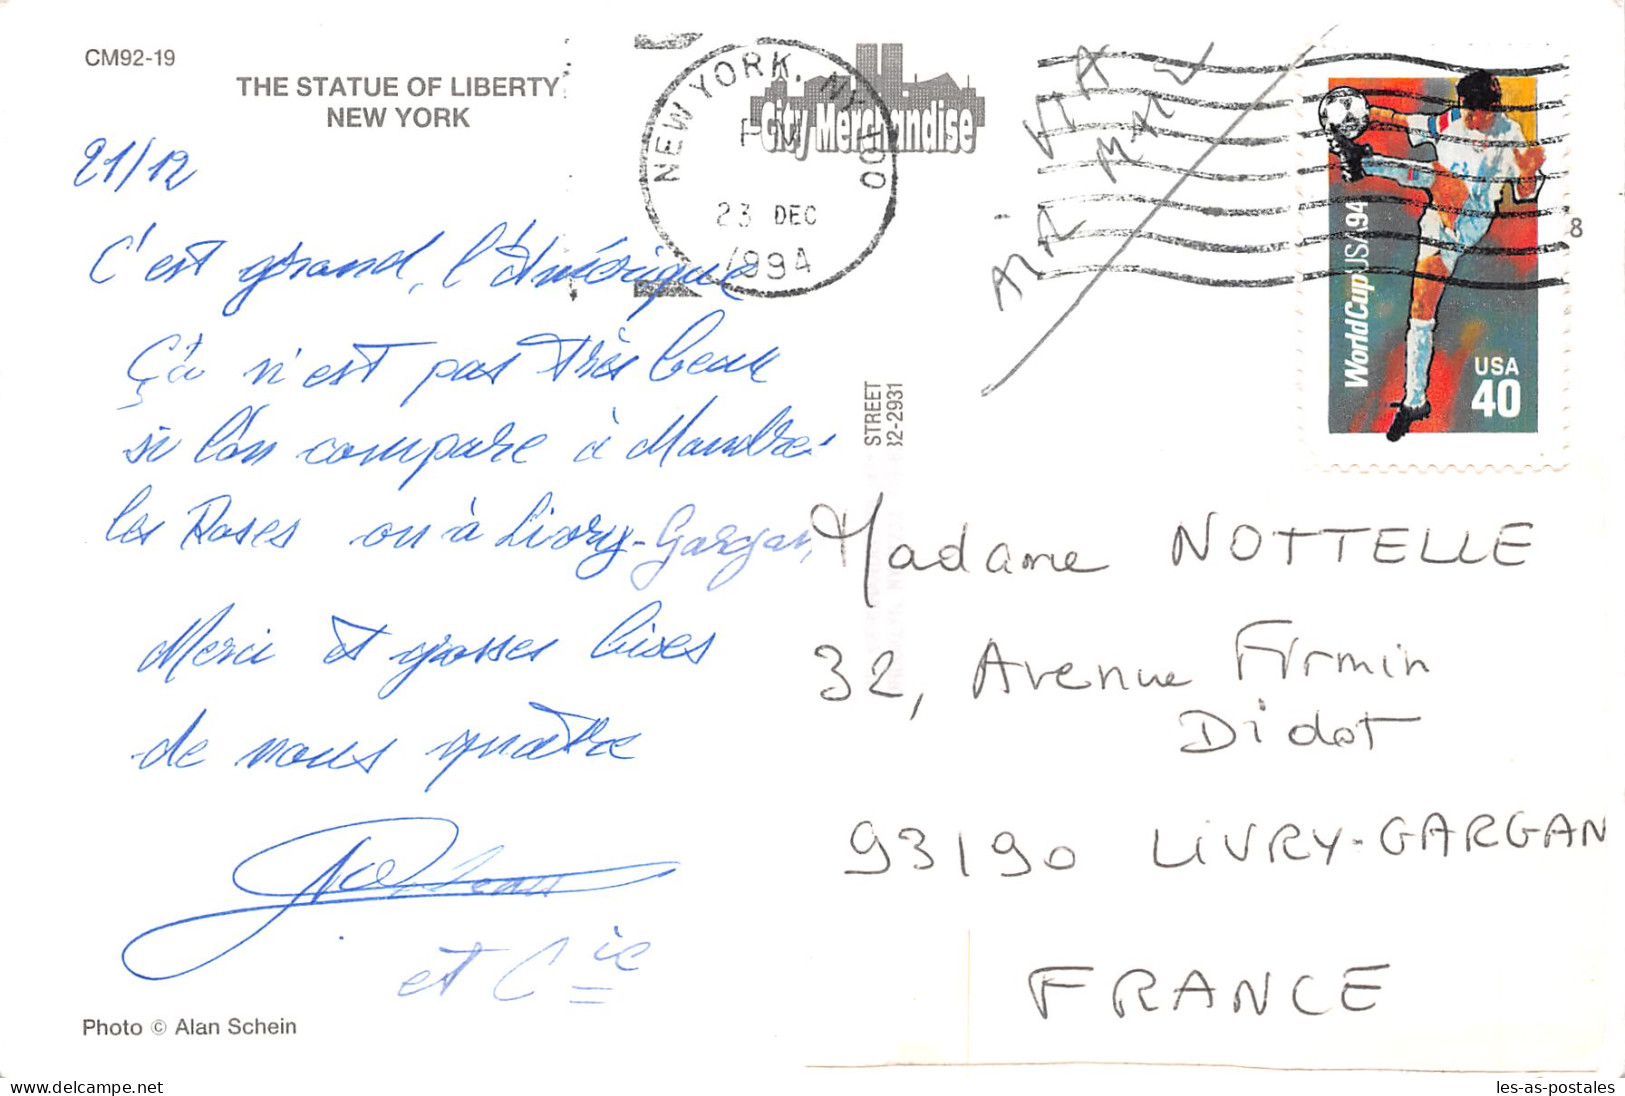 CM92-19
THE STATUE OF LIBERTY
NEW YORK
21/12
C'est grand, l'Amérique
Ça n'est pas très beau
si l'on compare à Mandres
les Roses ou à Livry-Gargan,
Merci et grosses bises
de nous quatre
et Cie
Photo © Alan Schein
NEW YORK, NY 100
PM
23 DEC
1994
City Merchandise
VIA
AIR MAIL
WorldCupUSA94
USA
40
8
STREET
32-2931
Madame NOTTELLE
32, Avenue Firmin
Didot
93190 LIVRY-GARGAN
FRANCE
delcampe.net
les-as-postales